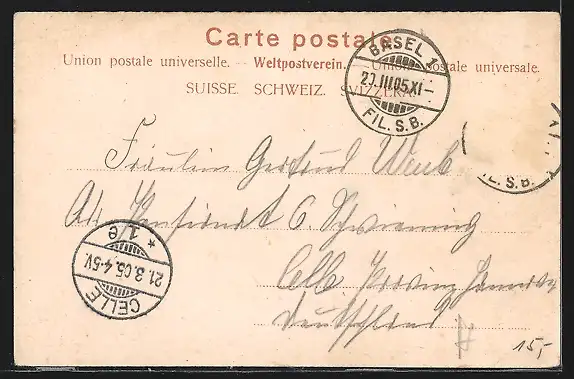 Carte postale.
Union postale universelle. — Weltpostverein. — Unione postale universale.
SUISSE. SCHWEIZ. SVIZZERA.
BASEL 1
20.III.05.XI–
FIL. S. B.
XI
FIL. S. B.
Fräulein Gertrud
6
Celle Provinz Hannover
Deutschland
* 1 e
21.3.05.4-5V.
CELLE
15,-